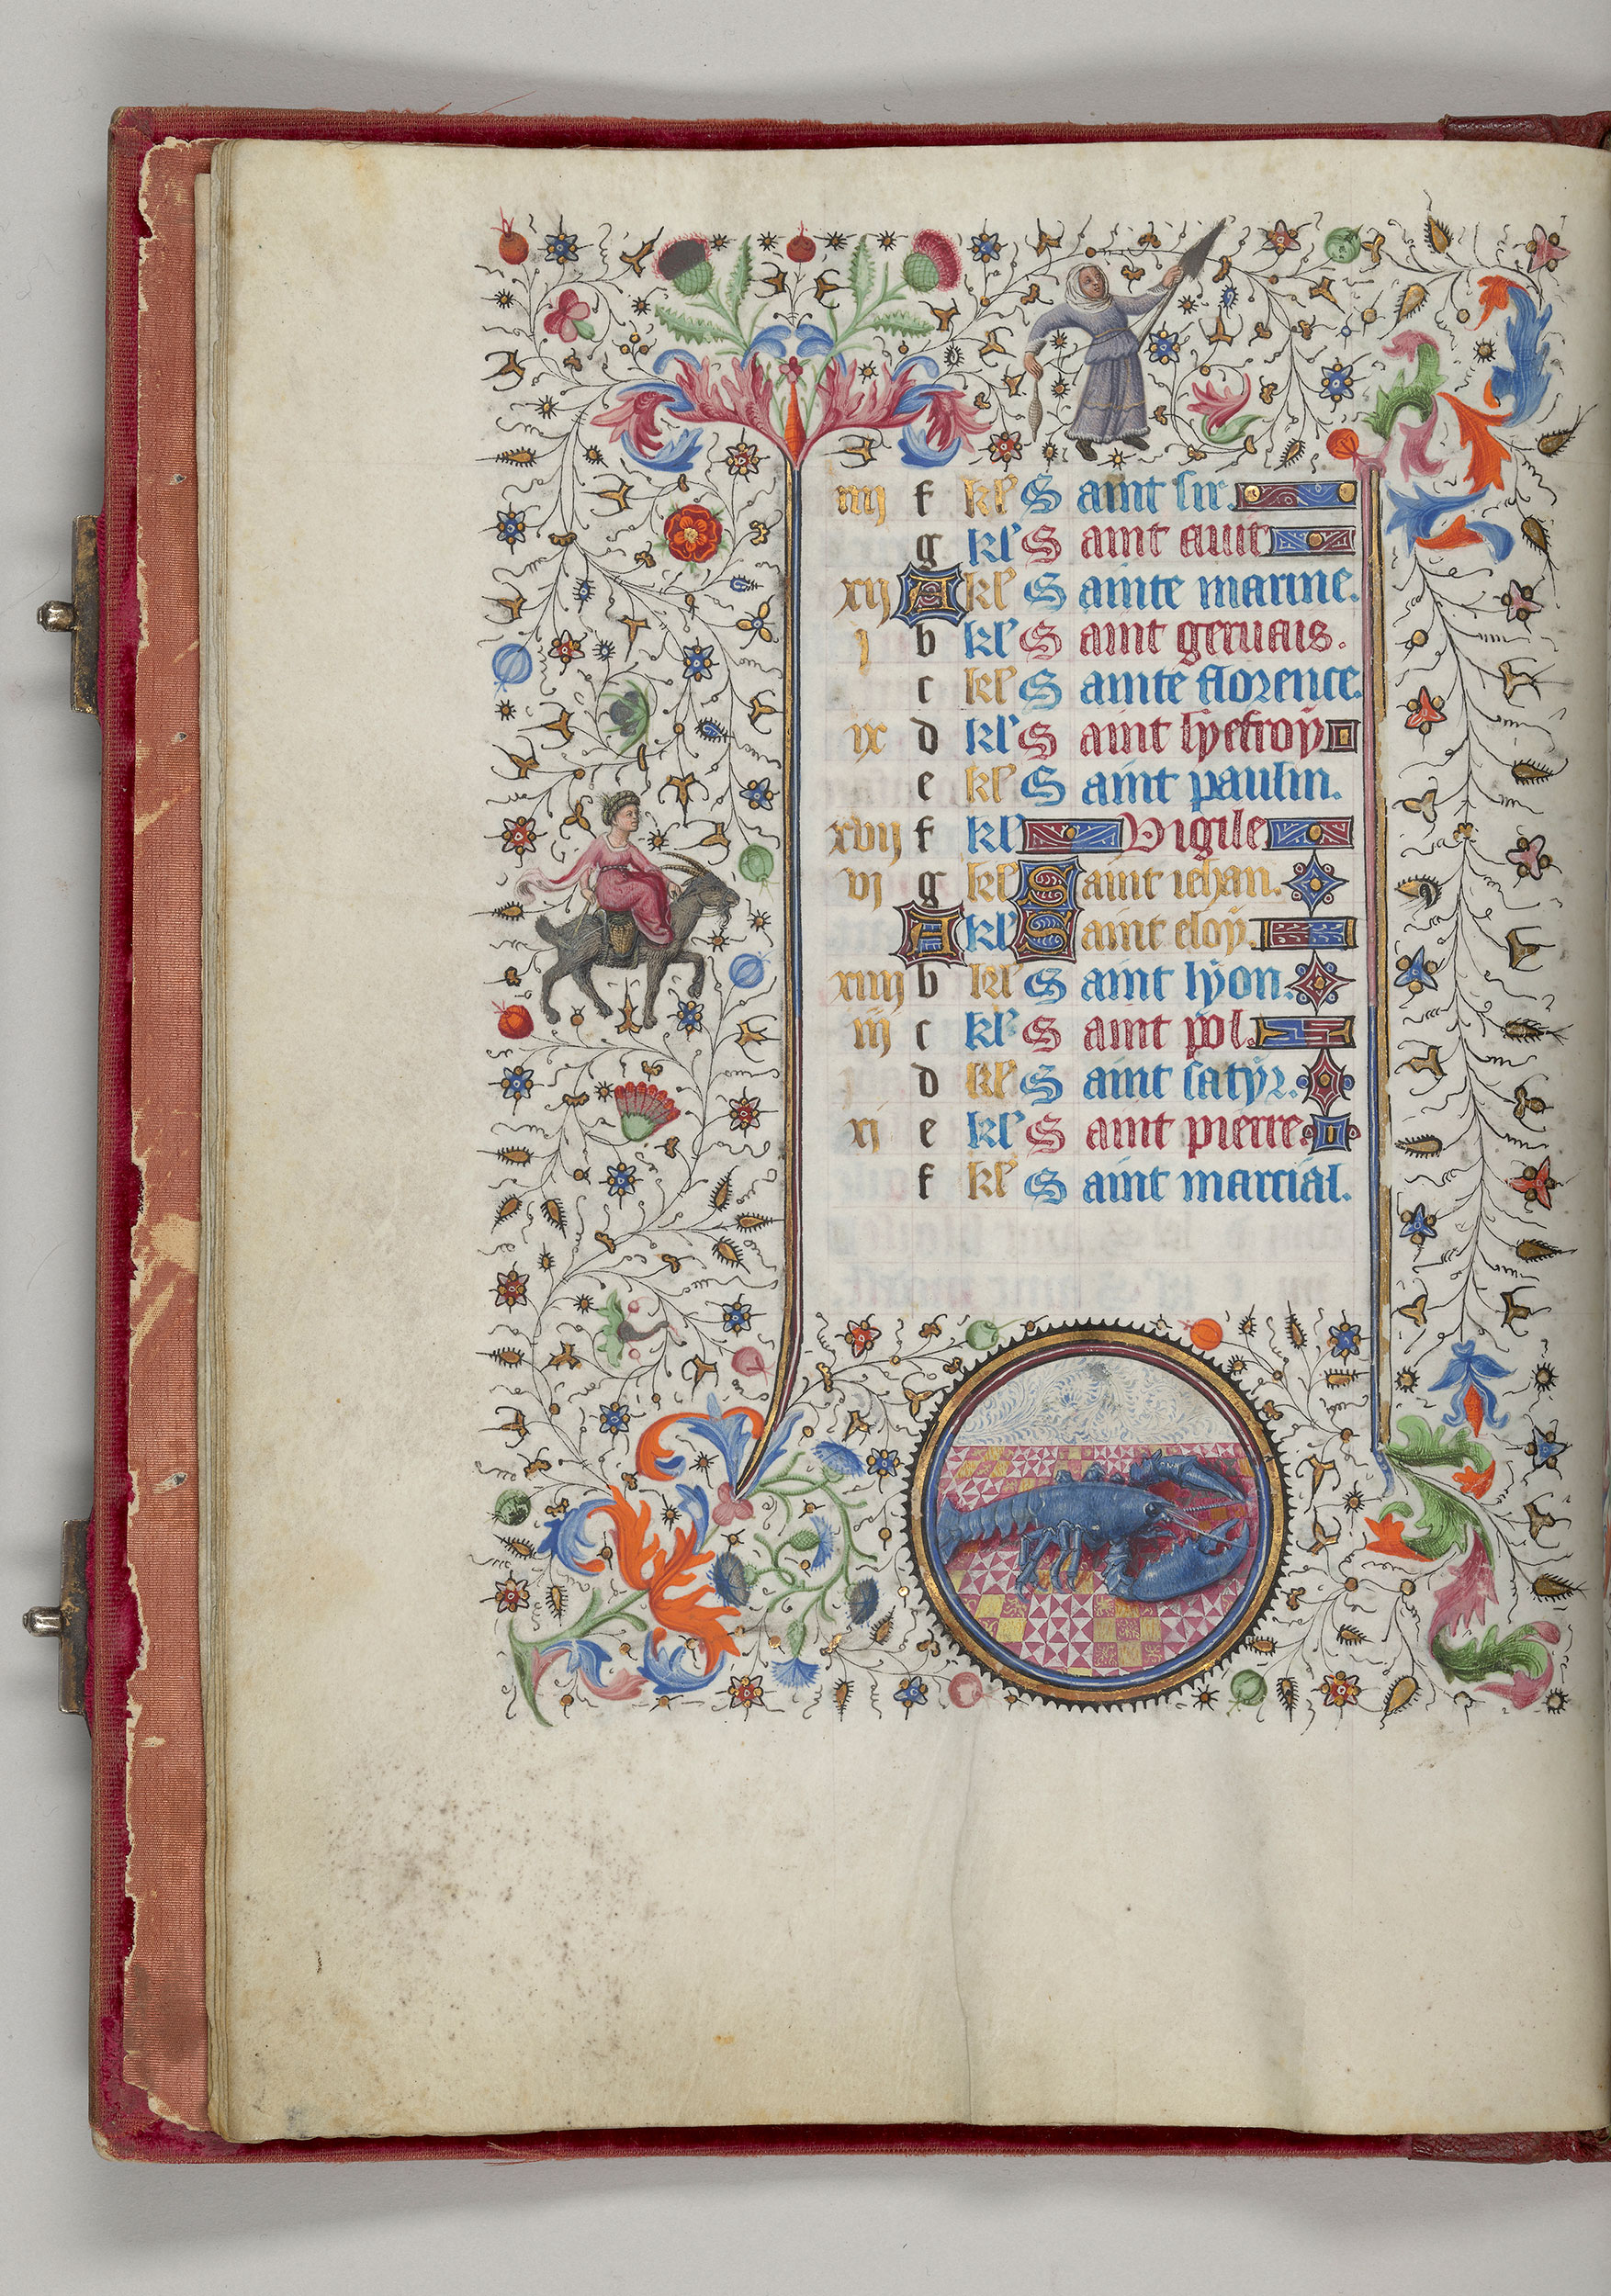 iiij f kl' Saint sir.
g kl' Saint auit
xij A kl' Sainte marine.
j b kl' Saint geruais.
c kl' Sainte florence.
ix d kl' Saint lyeffroy
e kl' Saint paulin.
xvij f kl' Vigile
vj g kl' Saint iehan.
A kl' Saint eloy.
xiiij b kl' Saint lyon.
iij c kl' Saint pol.
d kl' Saint satyr.
xj e kl' Saint pierre.
f kl' Saint marcial.